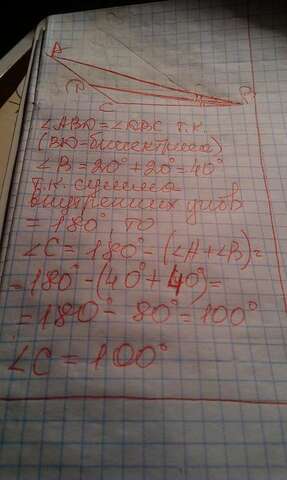 A
D
C
B
∠ABD = ∠DBC т.к.
(BD=биссектриса)
∠B = 20° + 20° = 40°
т.к. сумма
внутренних углов
= 180° то
∠C = 180° - (∠A + ∠B) =
= 180° - (40° + 40°) =
= 180° - 80° = 100°
∠C = 100°